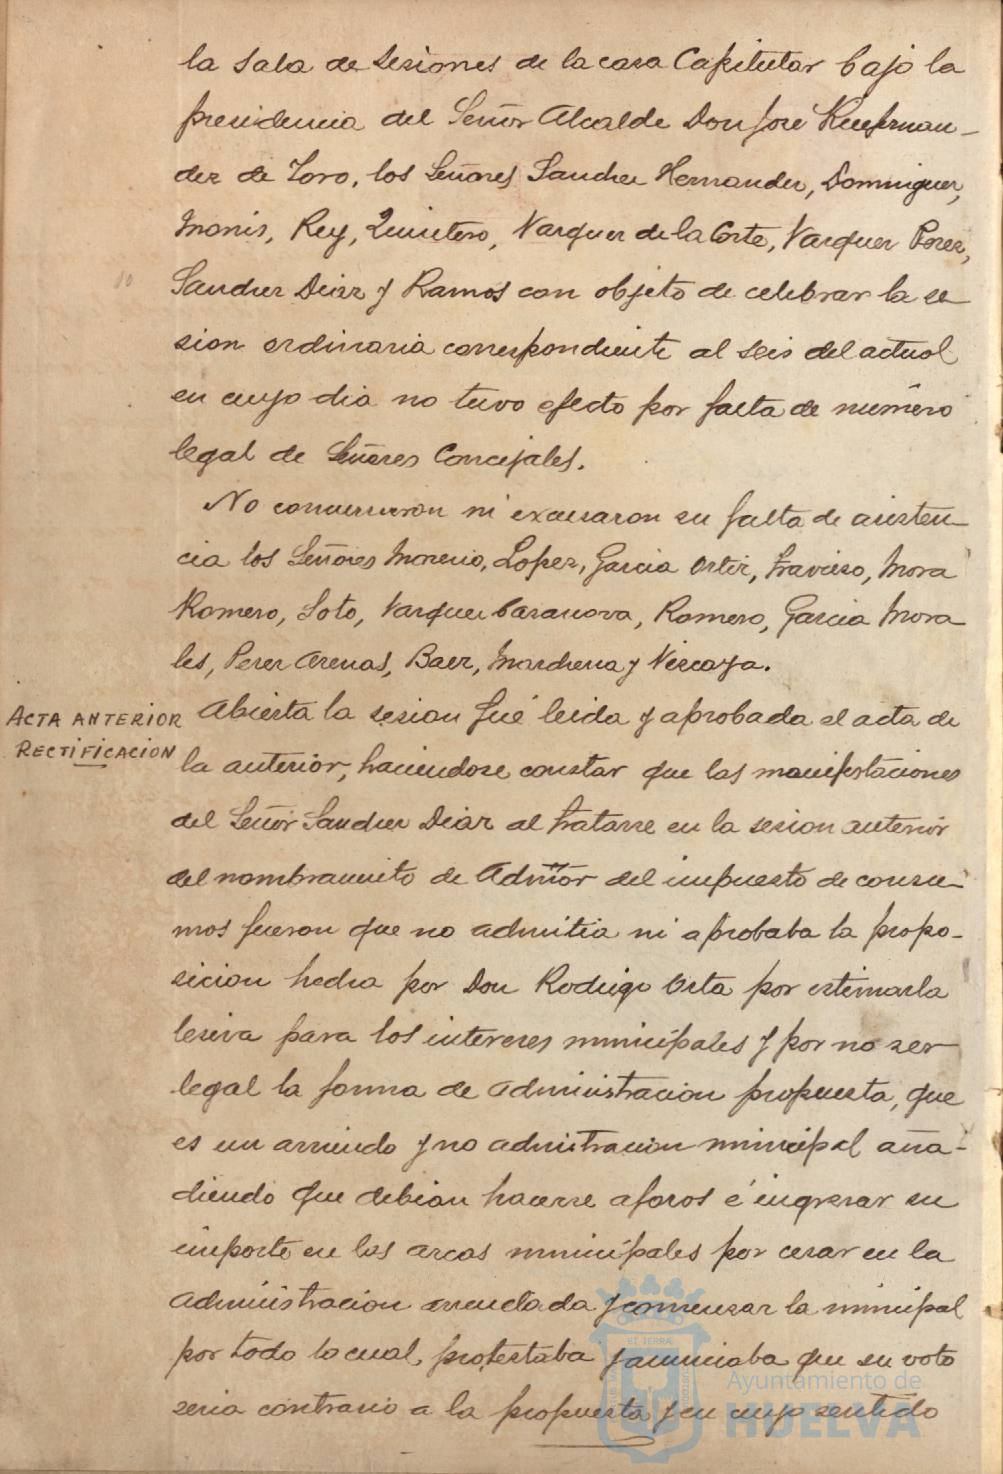 la sala de sesiones de la casa Capitular bajo la
presidencia del Señor Alcalde Don José
dez de Toro, los Señores Sanchez Hernandez, Dominguez,
Monis, Rey, Quintero, Vazquez de la Corte, Vazquez Perez,
Sanchez Diaz y Ramos con objeto de celebrar la se
sion ordinaria correspondiente al seis del actual
en cuyo dia no tuvo efecto por falta de número
legal de Señores Concejales.
No concurrieron ni excusaron su falta de asisten
cia los Señores Moreno, Lopez, Garcia Ortiz, Travieso, Mora
Romero, Soto, Vazquez Casanova, Romero, Garcia Mora
les, Perez Arenas, Baez, Marchena y Vizcaya.
ACTA ANTERIOR
RECTIFICACION
Abierta la sesion fué leida y aprobada el acta de
la anterior, haciendose constar que las manifestaciones
del Señor Sanchez Diaz al tratarse en la sesion anterior
del nombramiento de Admor del impuesto de consu-
mos fueron que no admitia ni aprobaba la propo-
sicion hecha por Don Rodrigo Orta por estimarla
lesiva para los intereses municipales y por no ser
legal la forma de administracion propuesta, que
es un arriendo y no admitracion municipal aña-
diendo que debian hacerse aforos é ingresar su
importe en las arcas municipales por cesar en la
administracion arrendada y comenzar la municipal
por todo lo cual, protestaba y anunciaba que su voto
seria contrario a la propuesta y en cuyo sentido
Ayuntamiento de
HUELVA